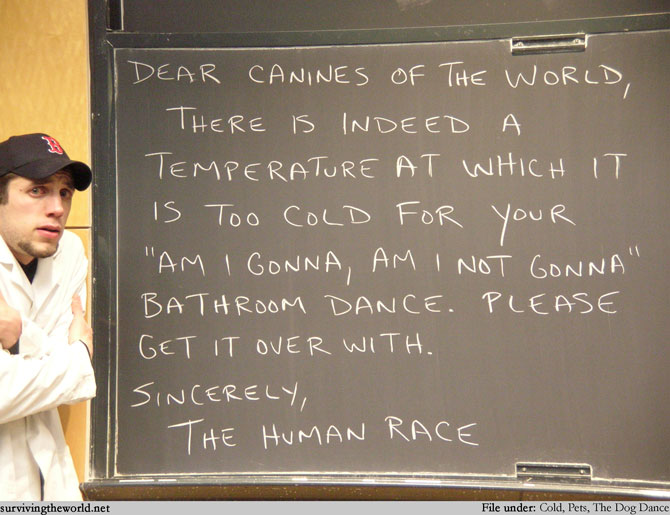 DEAR CANINES OF THE WORLD,
THERE IS INDEED A
TEMPERATURE AT WHICH IT
IS TOO COLD FOR YOUR
"AM I GONNA, AM I NOT GONNA"
BATHROOM DANCE. PLEASE
GET IT OVER WITH.
SINCERELY,
THE HUMAN RACE
B
survivingtheworld.net
File under: Cold, Pets, The Dog Dance